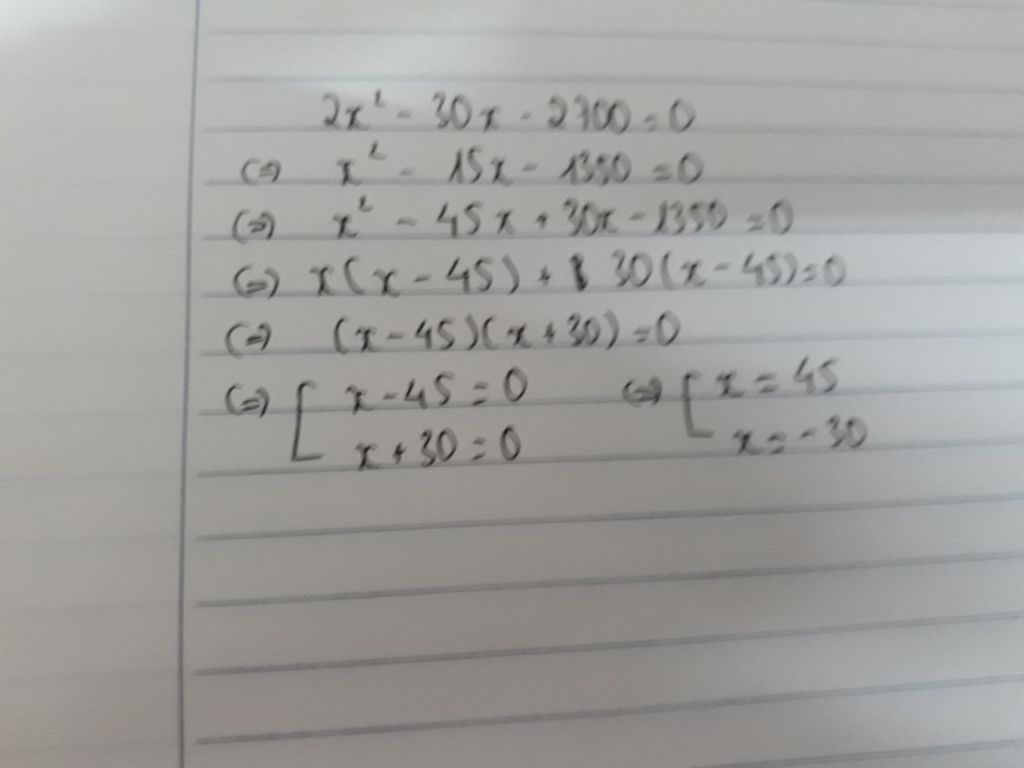 2x² - 30x - 2700 = 0
(=) x² - 15x - 1350 = 0
(=) x² - 45x + 30x - 1350 = 0
(=) x(x - 45) + 30(x - 45) = 0
(=) (x - 45)(x + 30) = 0
(=) [ x - 45 = 0 (=) [ x = 45
x + 30 = 0 x = -30